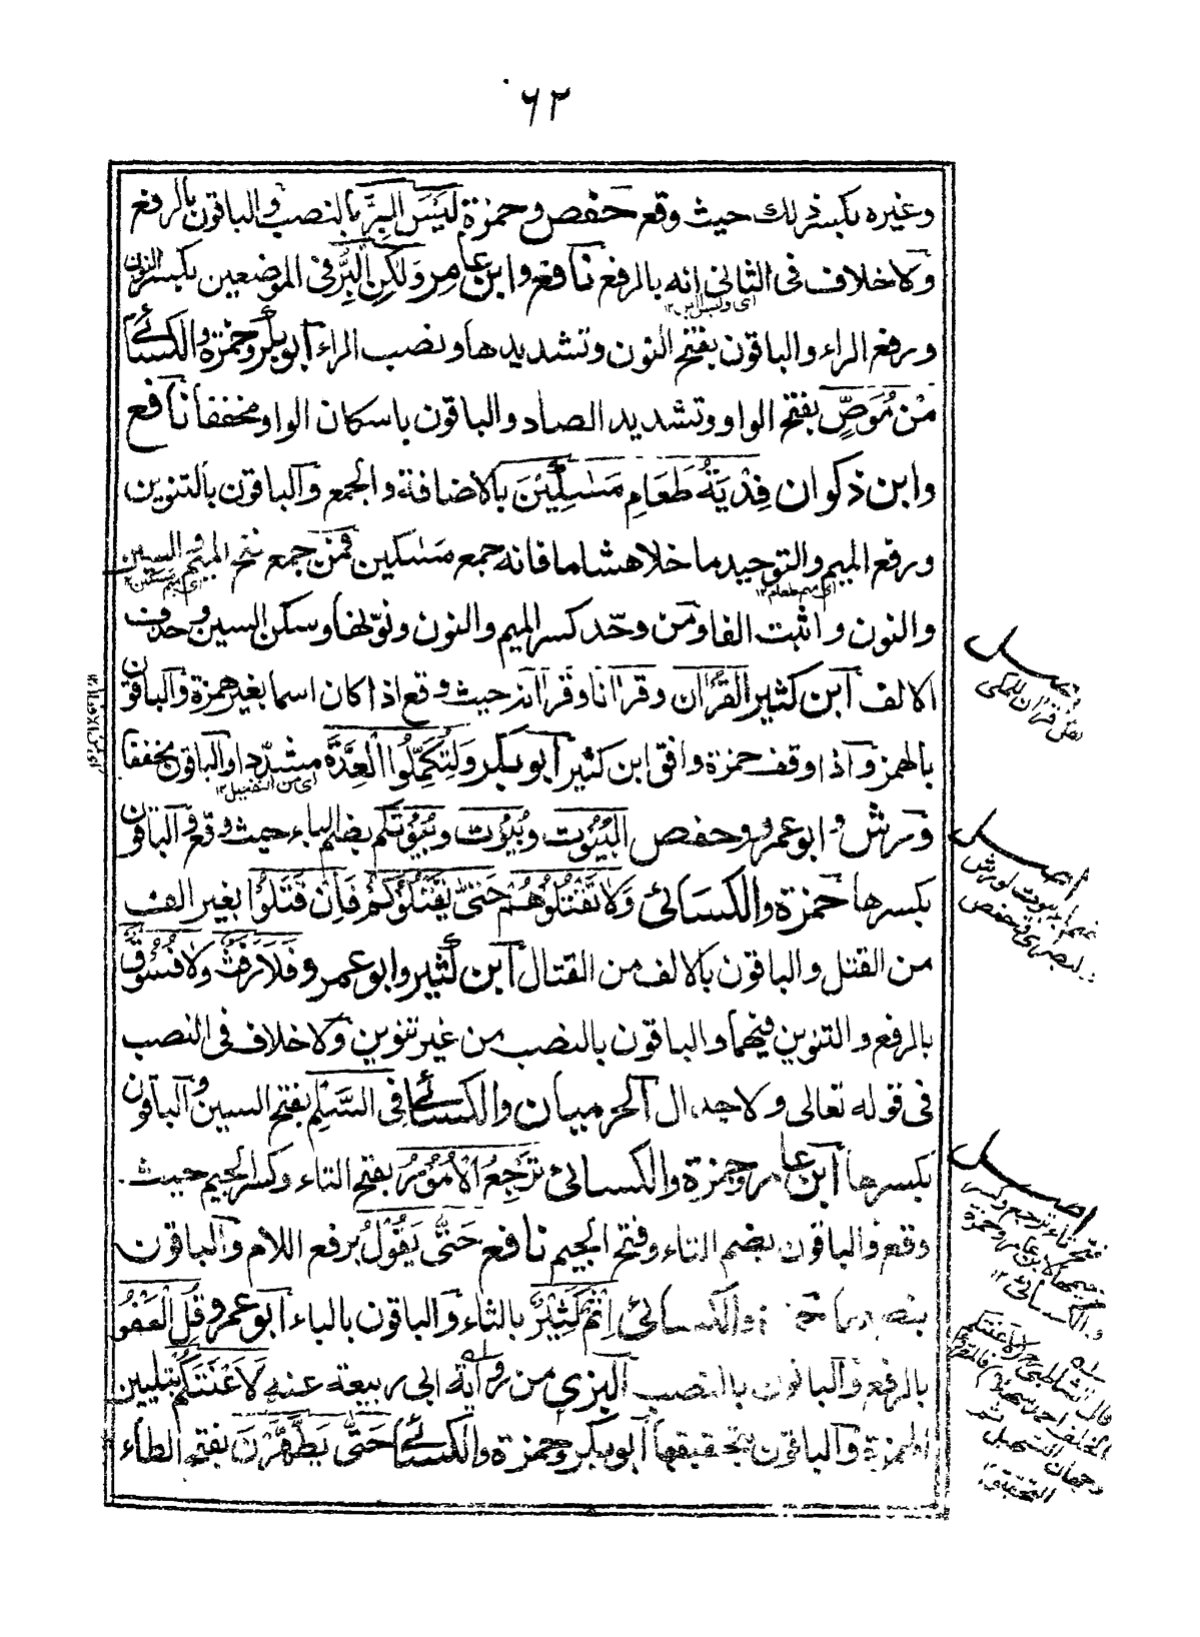 ٦٢
وغيره بكسر ذلك حيث وقع حفص وحمزة لَيْسَ الْبِرَّ بالنصب والباقون بالرفع
ولا خلاف فى الثانى انه بالرفع نافع وابن عامر وَلٰكِنِ الْبِرُّ فى الموضعين بكسر النون
ورفع الراء والباقون بفتح النون وتشديدها ونصب الراء ابو بكر وحمزة والكسائى
مِنْ مُوَصٍّ بفتح الواو وتشديد الصاد والباقون باسكان الواو مخففا نافع
وابن ذكوان فِدْيَةُ طَعَامِ مَسٰكِيْنَ بالاضافة والجمع والباقون بالتنوين
ورفع الميم والتوحيد ما خلا هشاما فانه جمع مسٰكين فمن جمع فتح الميم والسين
اى ميم طعام ١٢
والنون واثبت الفا ومن وحّد كسر الميم والنون ونوّنها وسكن السين وحذف
الالف ابن كثير القُرَان وقرانا وقرانه حيث وقع اذا كان اسما بغير همزة والباقون
بالهمز واذا وقف حمزة وافق ابن كثير ابو بكر وَلِتُكَمِّلُوا الْعِدَّةَ مشدّدا والباقون مخففا
اى من التفعيل ١٢
ورش وابو عمرو وحفص الْبُيُوْت وبُيُوْت وبُيُوْتكم بضم الباء حيث وقع والباقون
بكسرها حمزة والكسائى وَلَا تَقْتُلُوْهُمْ حَتّٰى يَقْتُلُوْكُمْ فَاِنْ قَتَلُوْا بغير الف
من القتل والباقون بالالف من القتال ابن كثير وابو عمرو فَلَا رَفَثٌ وَلَا فُسُوْقٌ
بالرفع والتنوين فيهما والباقون بالنصب من غير تنوين ولا خلاف فى النصب
فى قوله تعالى ولا جدال الحرميان والكسائى فِى السَّلْمِ بفتح السين والباقون
بكسرها ابن عامر وحمزة والكسائى تَرْجِعُ الْاُمُوْرُ بفتح التاء وكسر الجيم حيث
وقع والباقون بضم التاء وفتح الجيم نافع حَتّٰى يَقُوْلُ برفع اللام والباقون
بنصبها حمزة والكسائى اِثْمٌ كَثِيْرٌ بالثاء والباقون بالباء ابو عمرو قُلِ الْعَفْوُ
بالرفع والباقون بالنصب البزى من رواية ابى ربيعة عنه لَاَعْنَتَكُمْ بتليين
الهمزة والباقون بتحقيقها ابو بكر وحمزة والكسائى حَتّٰى يَطَّهَّرْنَ بفتح الطاء
اصل
نقل قران للمكى
اصل
ضم باء بيوت لورش
والبصرى وحفص
اصل
فتح تاء ترجع وكسر
جيمها لابن عامر وحمزة
والكسائى ١٢
قال الشاطبى
وجهان التسهيل
التحقيق